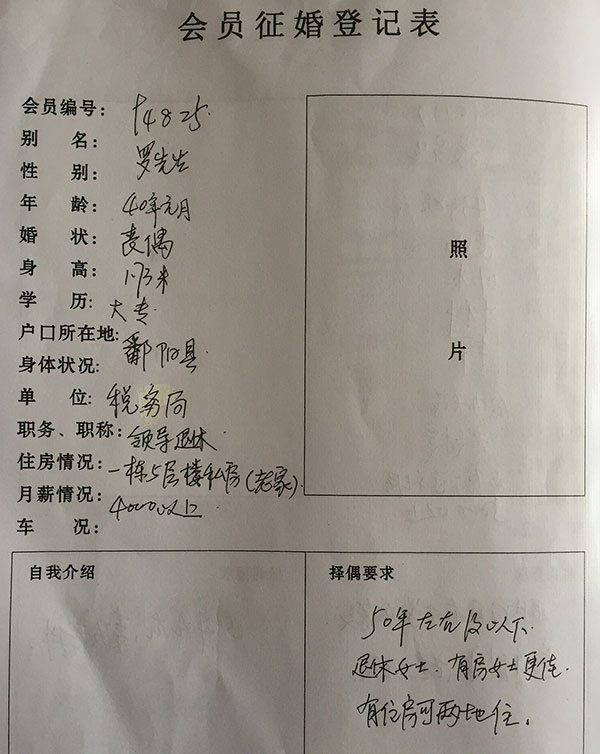 会员征婚登记表
会员编号： 14825
别 名： 罗先生
性 别：
年 龄： 40年元月
婚 状： 丧偶
身 高： 1.73米
学 历： 大专
户口所在地: 鄱阳县
身体状况:
单 位: 税务局
职务、职称: 领导退休
住房情况: 一栋5层楼私房(老家)
月薪情况: 4000以上
车 况:
照
片
自我介绍
择偶要求
50年左右及以下
退休女士. 有房女士更佳.
有住房可两地住.